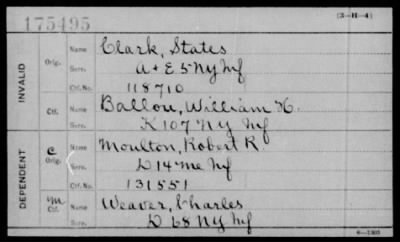 175495
(3-H-4)
INVALID
Orig. Name Clark, States
Serv. A & E 5 NY Inf
Ctf. No. 118710
Ctf. Name Ballou, William H.
Serv. K 107 NY Inf
DEPENDENT
C Orig. Name Moulton, Robert R
Serv. D 14 Me Inf
Ctf. No. 131551
M Ctf. Name Weaver, Charles
Serv. D 68 NY Inf